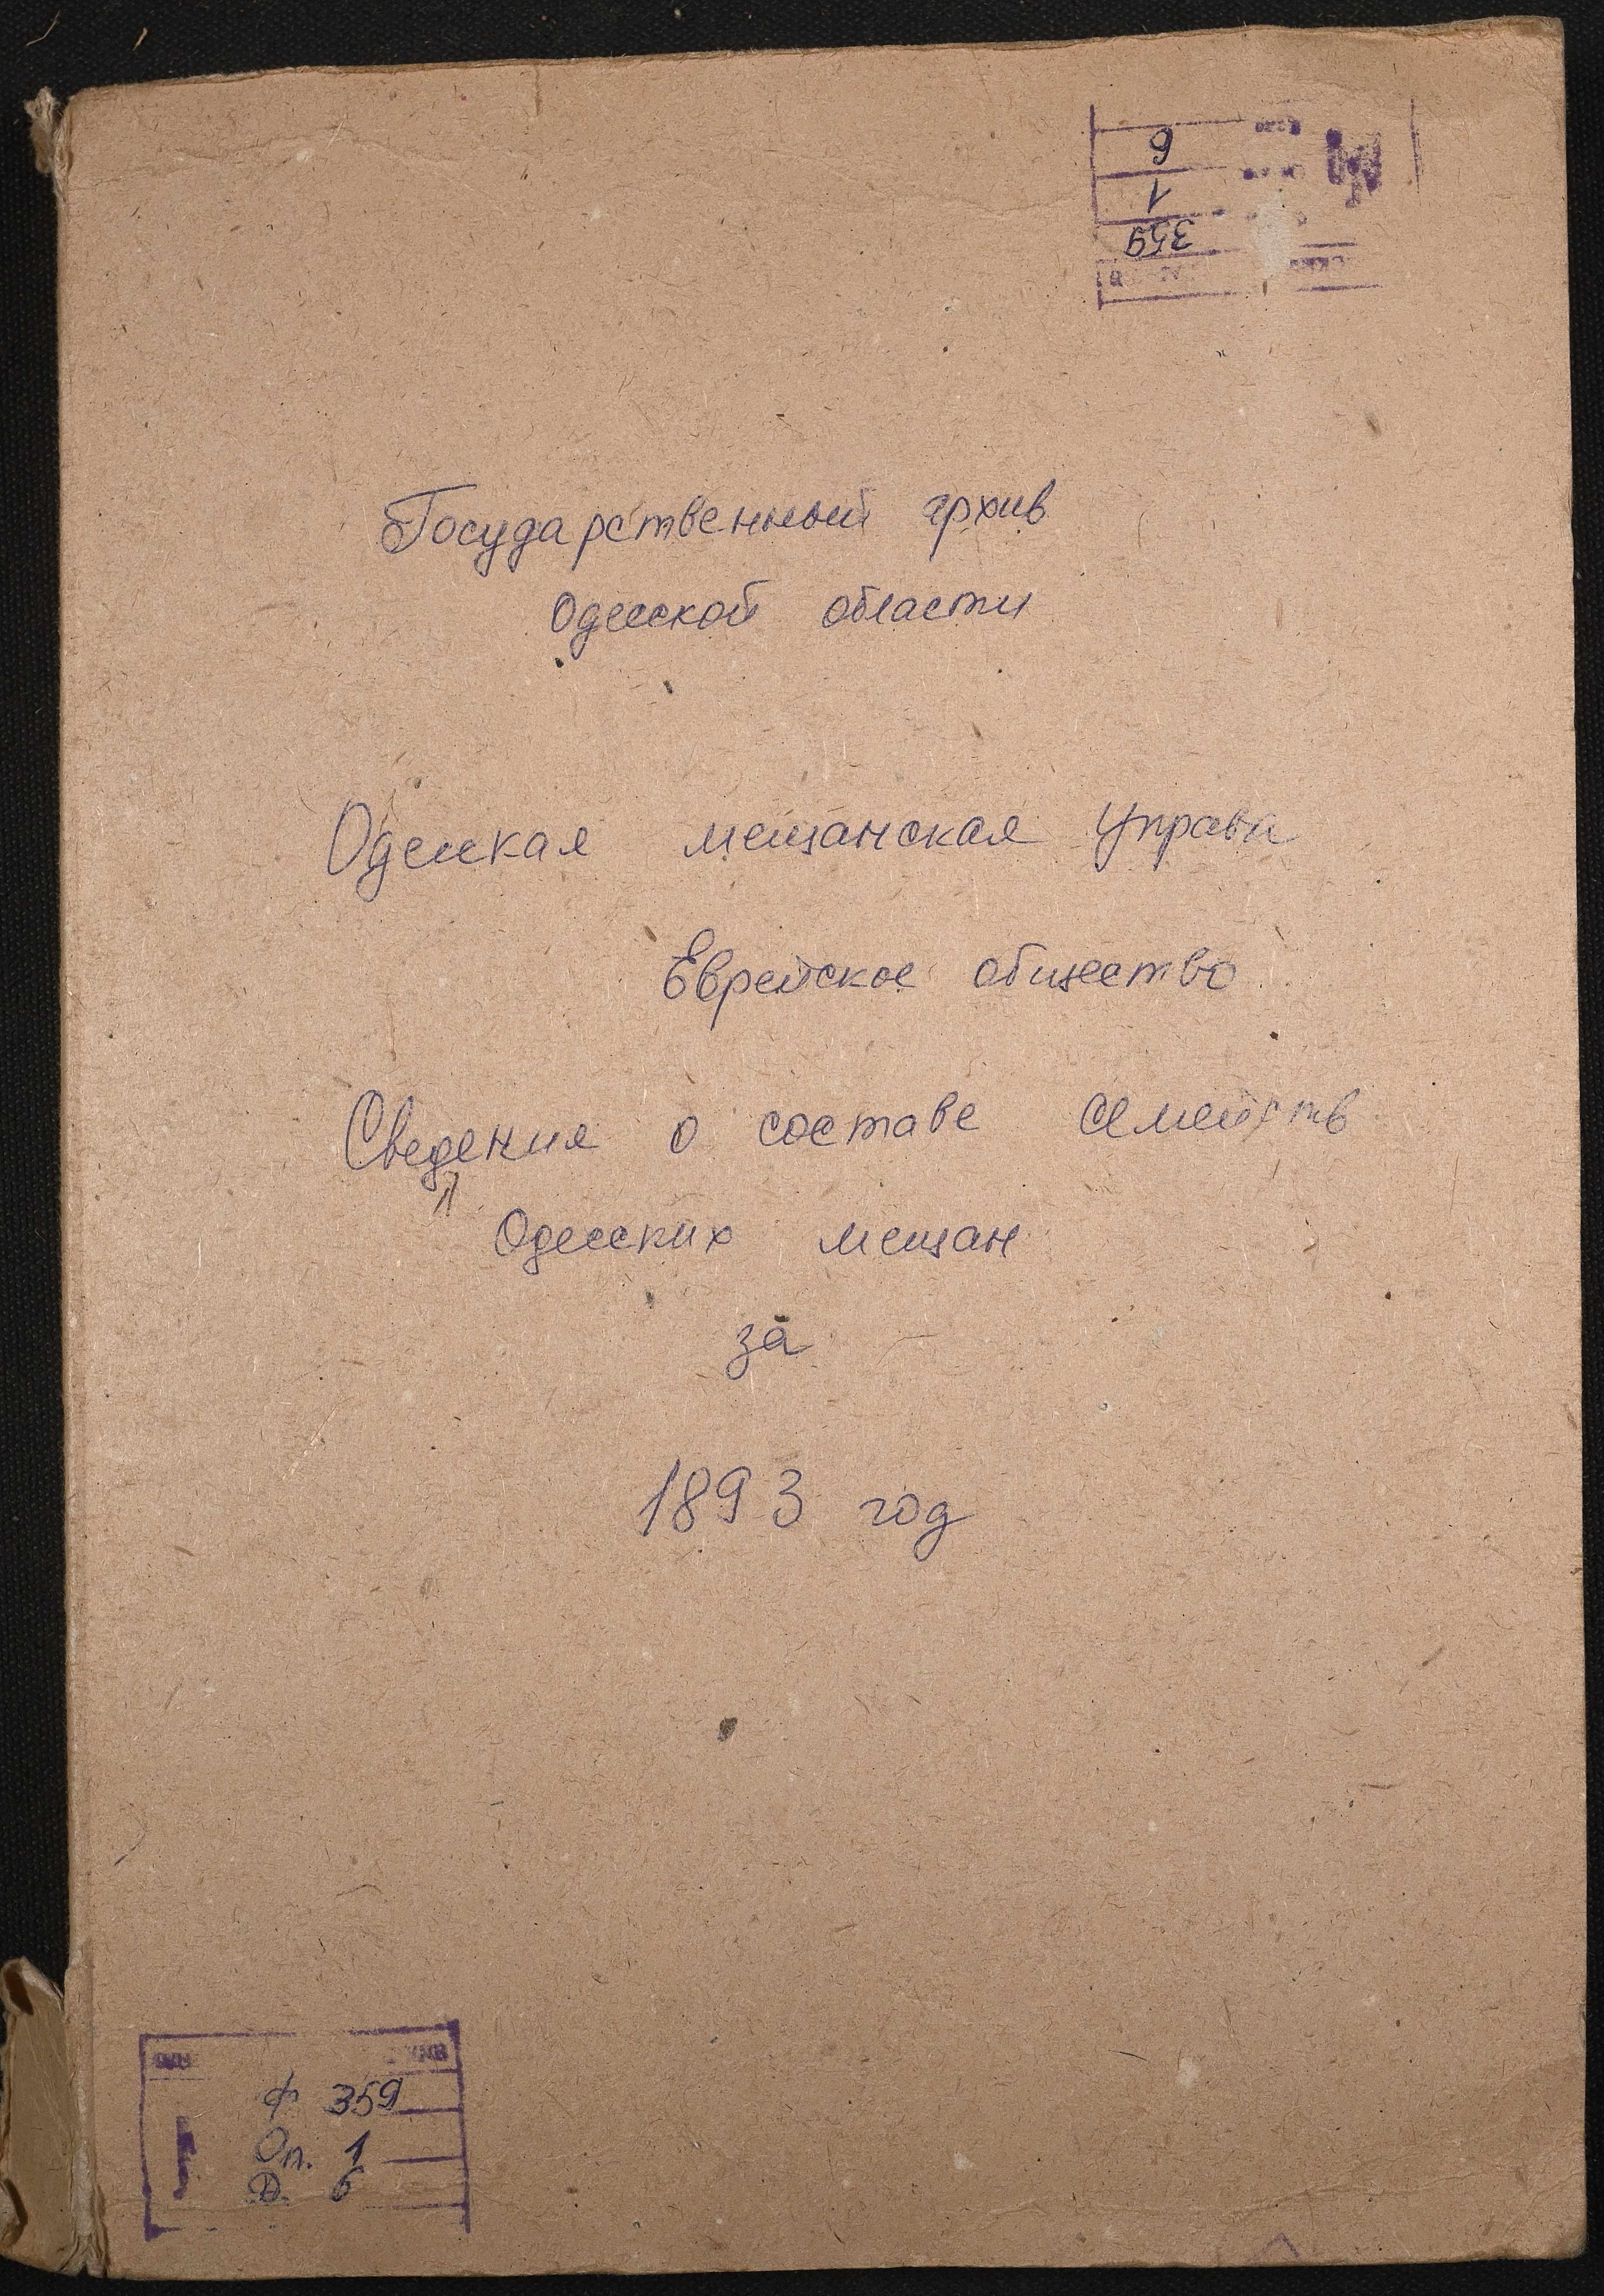 6
1
359
Государственный архив
Одесской области
Одесская мещанская управа
Еврейское общество
Сведения о составе семейств
Одесских мещан
за
1893 год
Ф 359
Оп. 1
Д. 6